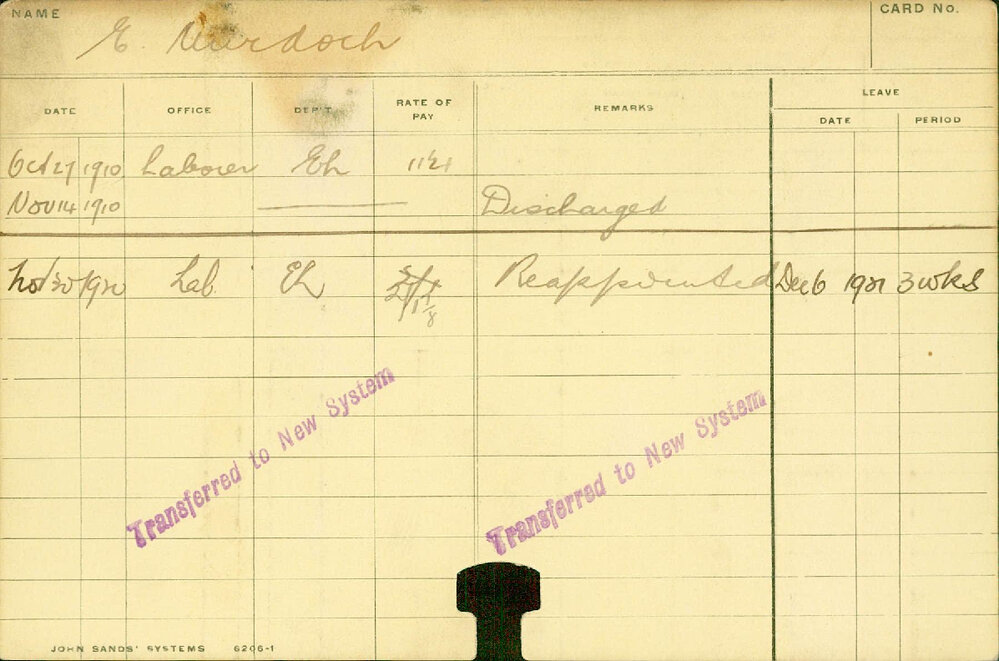 NAME E. Murdoch CARD No.
DATE OFFICE DEP'T RATE OF PAY REMARKS LEAVE
DATE PERIOD
Oct 27 1910 Laborer Eh
Nov 14 1910 Discharged
Nov 30 1920 Lab. Eh Reappointed Dec 6 1921 3 wks
Transferred to New System
Transferred to New System
JOHN SANDS' SYSTEMS 6206-1